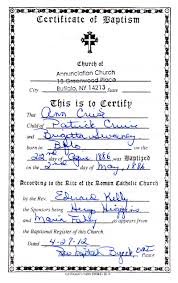 Certificate of Baptism
Church of
Annunciation Church
15 Greenwood Place
City Buffalo, NY 14213 State
This is to Certify
That Ann Cruse
Child of Patrick Cruise
and Brigetta Swaney
born in Bflo
on the
22nd of April 1886 was Baptized
on the 2nd day of May, 1886
According to the Rite of the Roman Catholic Church
by the Rev. Edward Kelly
the Sponsors being Hugh Higgins
and Maria Fahey as appears
from the
Baptismal Register of this Church.
Dated 4-27-12